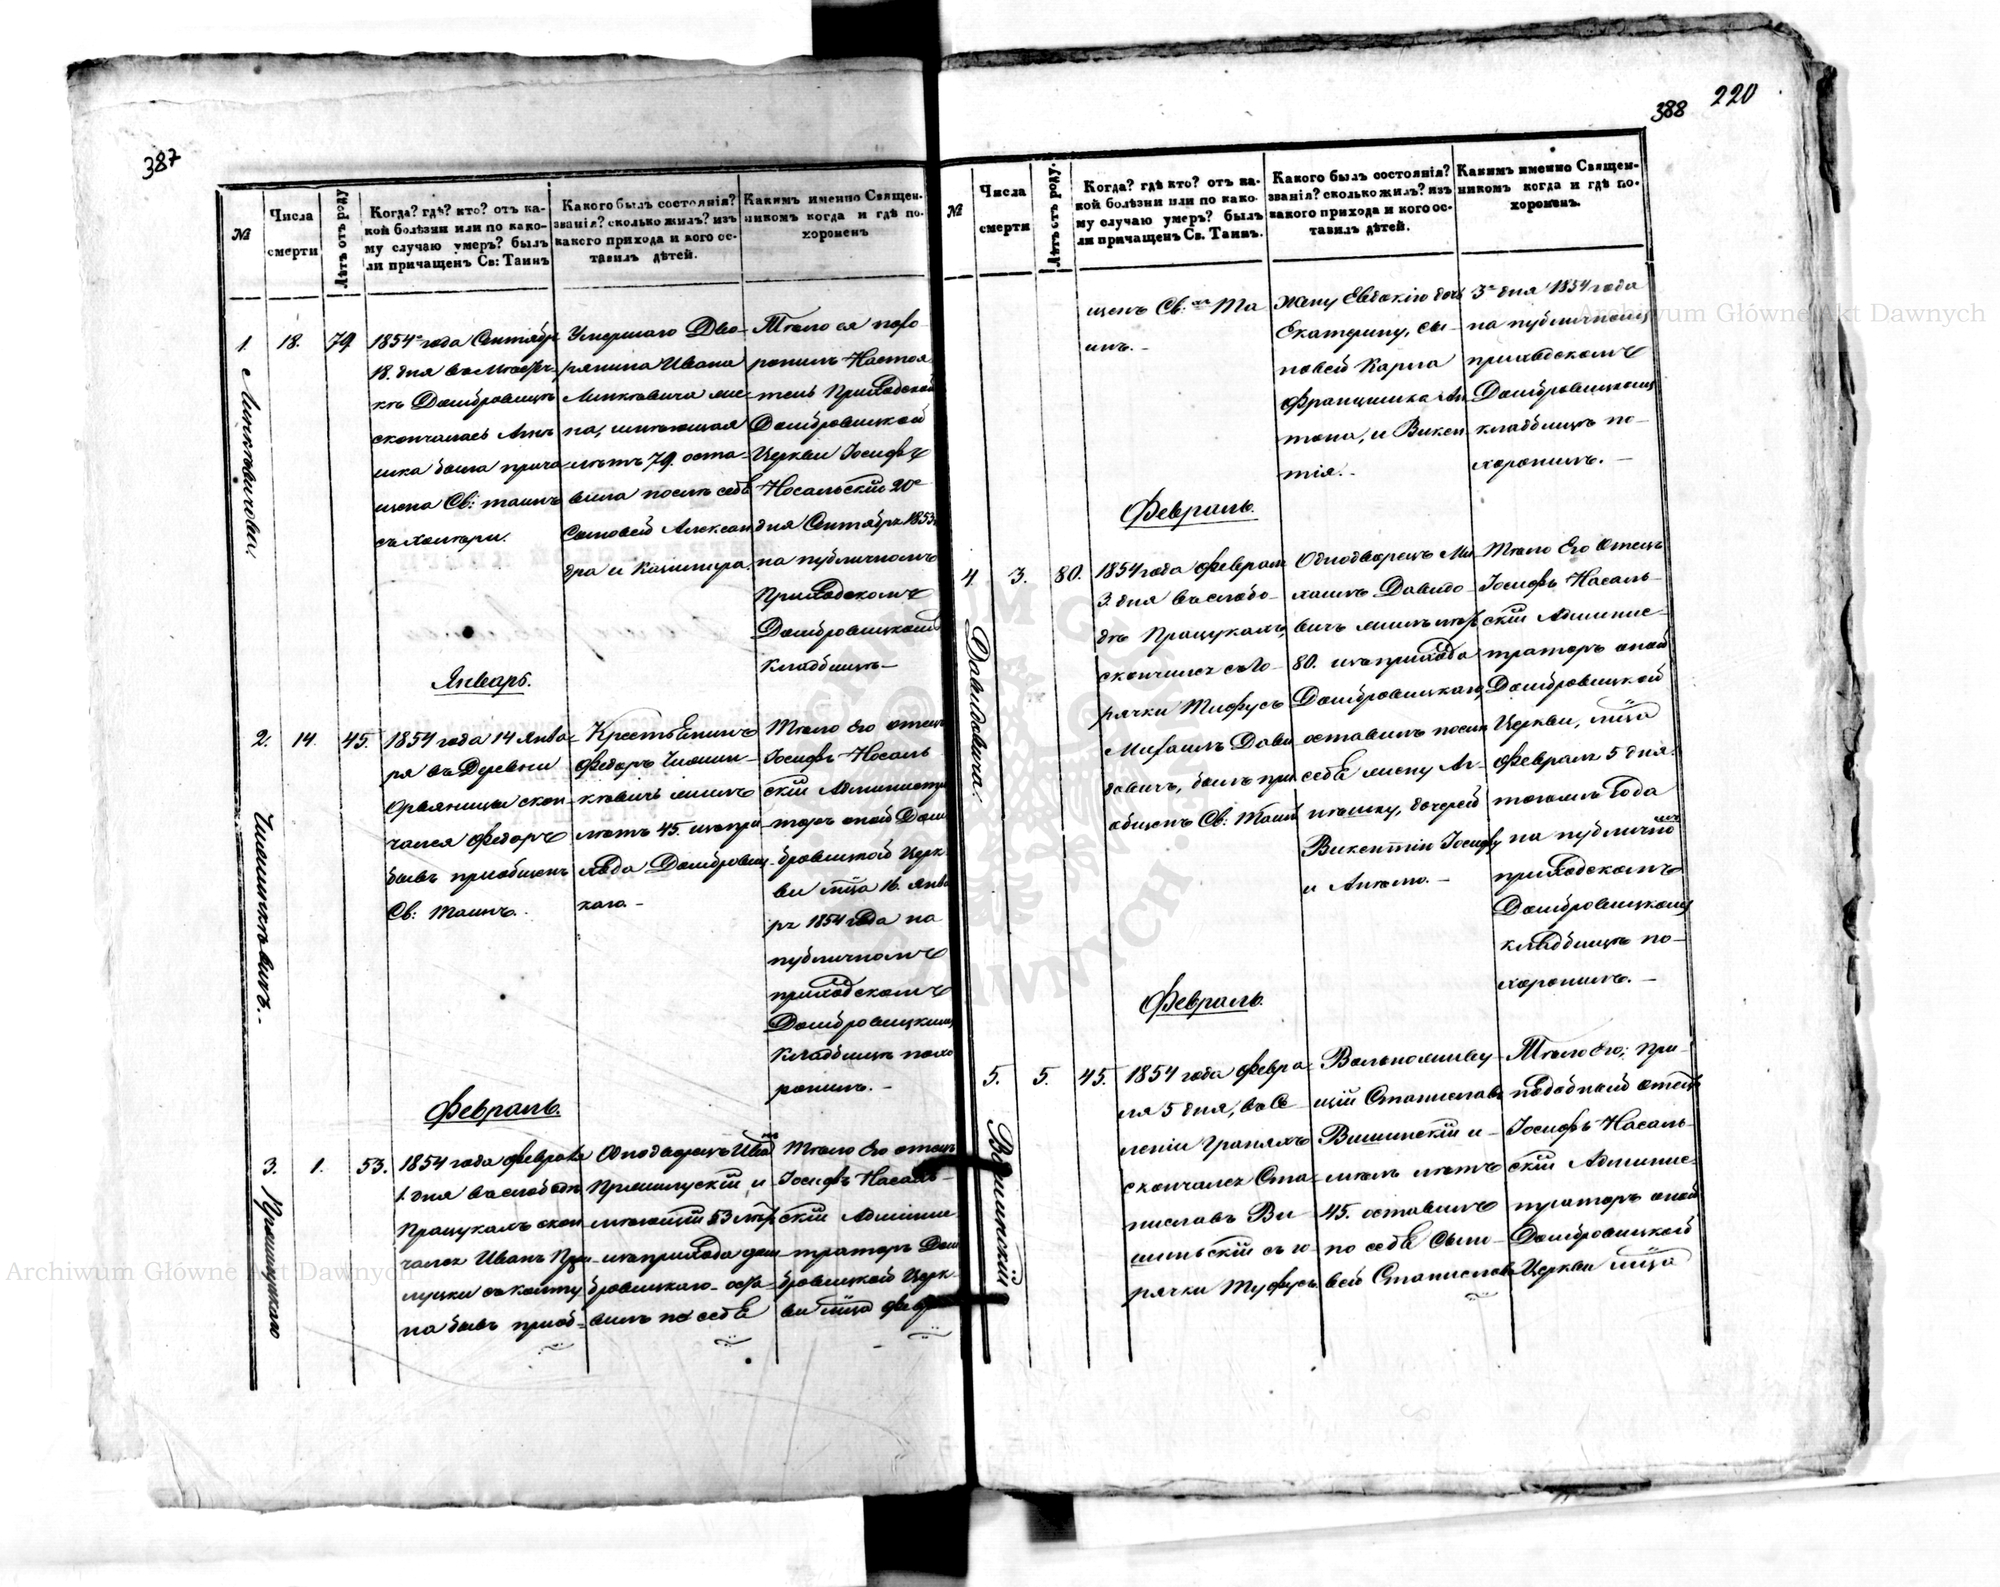 387
№
Числа
смерти
Лѣтъ отъ роду
Когда? гдѣ? кто? отъ ка-
кой болѣзни или по како-
му случаю умеръ? былъ
ли причащенъ Св: Таинъ
Какого былъ состоянія?
званія? сколько жилъ? изъ
какого прихода и кого ос-
тавилъ дѣтей.
Какимъ именно Священ-
никомъ когда и гдѣ по-
хороненъ
1.
18.
79
1854 года Сентябр
18. дня въ
Домбровицѣ
скончалась
была прича
щена Св: таинъ
Умершаго Дво-
рянина Ивана
на, имѣющая
лѣтъ 79. оста-
вила послѣ себѣ
Сыновей Алексан
дра и Казимира.
Тѣло ея похо-
ронилъ Настоя
тель Приходской
Домбровицкой
Церкви Іосифъ
Носальскій 20
дня Сентября 1853
на публичномъ
Приходскомъ
Домбровицкомъ
Кладбищѣ—
Январь.
2.
14.
45.
1854 года 14 Янва-
ря въ Деревни
Орвяницы скон
чался Федоръ
бывъ приобщенъ
Св: Таинъ.
Крестьянинъ
Федоръ
лѣтъ 45. изъ при
хода Домбровиц-
каго—
Тѣло Его отецъ
Іосифъ Носаль
скій Администра
торъ оной Дом
бровицкой Церк-
ви мца 16. Янва
ря 1854 года на
публичномъ
приходскомъ
Домбровицкомъ
Кладбищѣ похо
ронилъ.—
Февраль.
3.
1.
53.
1854 года февраля
1. дня въ слободѣ
Працукахъ скон
чался Иванъ
на бывъ приоб-
Однодворецъ Иванъ
53 лѣтъ
изъ прихода Дом
бровицкаго—оста-
вилъ по себѣ
Тѣло Его отецъ
Іосифъ Насаль-
скій Админис-
траторъ Дом
бровицкой Церк-
ви мца февр
388
220
№
Числа
смерти
Лѣтъ отъ роду.
Когда? гдѣ кто? отъ ка-
кой болѣзни или по како-
му случаю умеръ? былъ
ли причащенъ Св. Таинъ.
Какого былъ состоянія?
званія? сколько жилъ? изъ
какого прихода и кого ос-
тавилъ дѣтей.
Какимъ именно Священ-
никомъ когда и гдѣ по-
хороненъ.
щенъ Св: Та
инъ.—
жену Евдокію дочь
Екатерину, сы-
новей Карла
Францишка Ан
тона, и Викен
тія.—
3 дня 1854 года
на публичномъ
приходскомъ
Домбровицкомъ
кладбищѣ по-
хоронилъ.—
Февраль.
4.
3.
80.
Давидовичъ.
1854 года февраля
3. дня въ слобо-
дѣ Працукахъ,
скончался съ го-
рячки Тифусъ
Михаилъ Дави
довичъ, былъ при
общенъ Св: Таинъ
Однодворецъ Ми
хаилъ Давидо-
вичъ
80. изъ прихода
Домбровицкаго,
оставилъ послѣ
себѣ жену Аг-
нѣшку, дочерей
Викентія Іосифа
и Антона.—
Тѣло Его Отецъ
Іосифъ Насаль-
скій Админис-
траторъ оной
Домбровицкой
Церкви, мца
Февраля 5 дня
года
на публичномъ
приходскомъ
Домбровицкомъ
кладбищѣ по-
хоронилъ.—
Февраль.
5.
5.
45.
Вишинскій
1854 года февра-
ля 5 дня, въ Се-
леніи Граняхъ
скончался Ста-
ниславъ Ви-
шинскій съ го-
рячки Туфусъ
Станиславъ
Вишинскій и-
лѣтъ
45. оставилъ
по себѣ Сыно-
вей Станислава
Тѣло Его; Пре-
подобный отецъ
Іосифъ Насаль-
скій Админис-
траторъ оной
Домбровицкой
Церкви мца
Archiwum Główne Akt Dawnych
Archiwum Główne Akt Dawnych